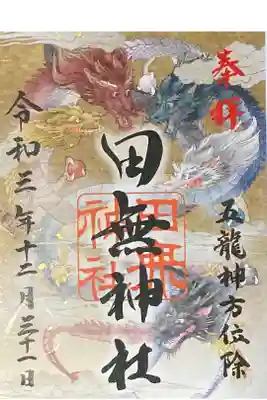 奉拝
五龍神方位除
田無神社
田無神社
令和三年十二月三十一日